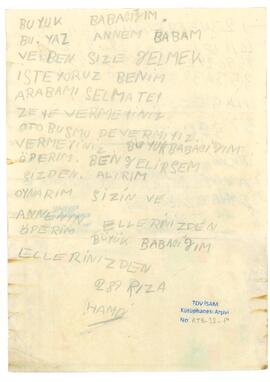 BÜYÜK BABACIĞIM.
BU. YAZ ANNEM BABAM
VE BEN SİZE GELMEK
İSTEYORUZ BENİM
ARABAMI SELMATEI
ZEYE VERMEYİNİZ
OTOBUSMU DEVERMİYİZ.
VERMEYİNİZ. BUYUKBABACIĞIM
ÖPERİM. BEN GELİRSEM
SİZDEN. ALIRIM
OYNARIM SİZİN VE
ANNEMİN ELLERİNİZDEN
ÖPERİM BÜYÜK BABACIĞIM
ELLERİNİZDEN
RIZA
TDV İSAM
Kütüphanesi Arşivi
No